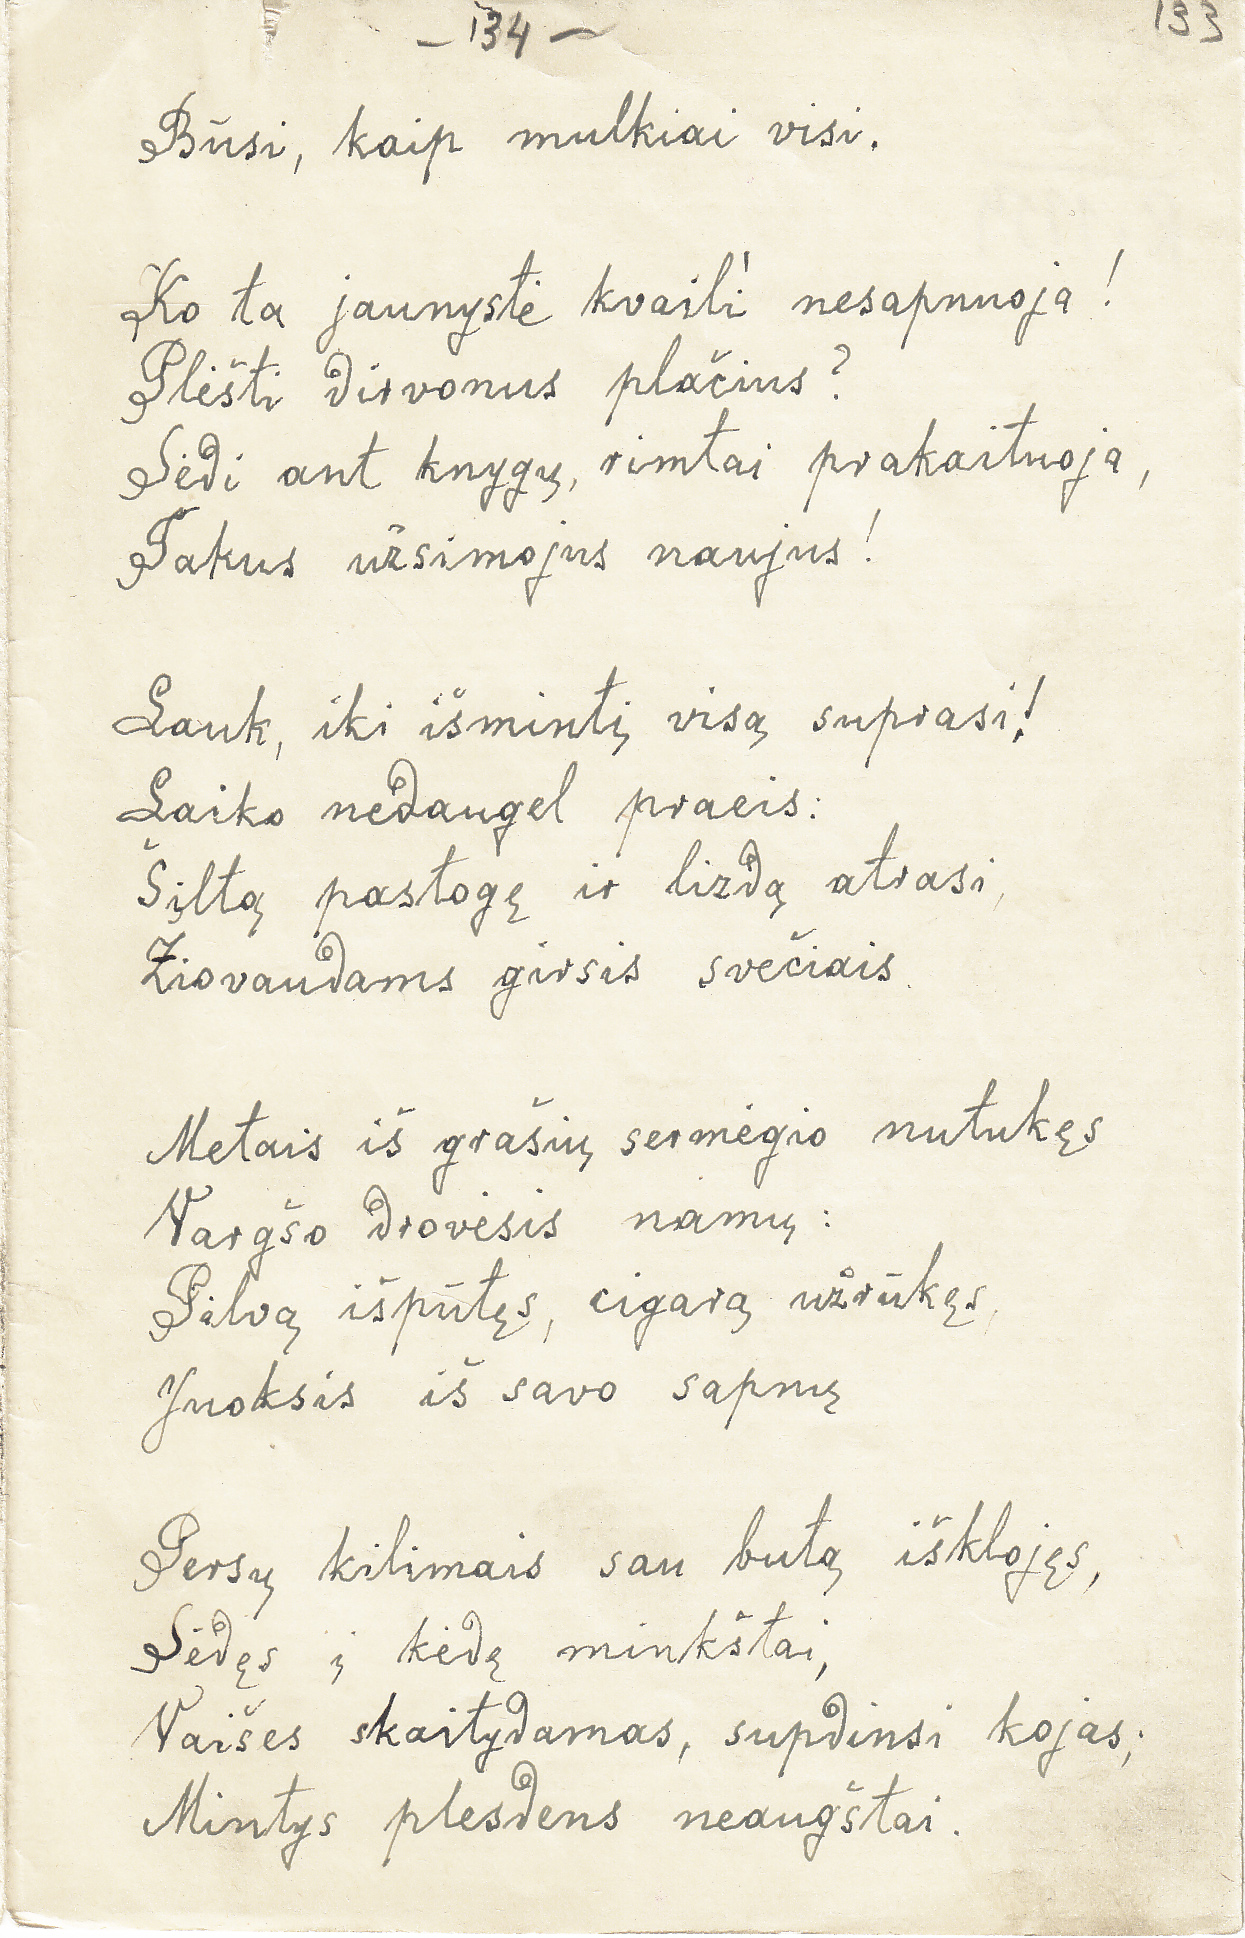 – 134 –
133
Būsi, kaip mulkiai visi.
Ko ta jaunystė kvaili nesapnuoja!
Plėšti dirvonus plačius?
Sėdi ant knygų, rimtai prakaituoja,
Takus užsimojus naujus!
Lauk, iki išmintį visą suprasi!
Laiko nedaugel praeis:
Šįltą pastogę ir lizdą atrasi,
Žiovaudams girsis svečiais.
Metais iš grašių sermėgio nutukęs
Vargšo drovėsis namų:
Pilvą išpūtęs, cigarą užrūkęs,
Juoksis iš savo sapnų
Persų kilimais sau butą išklojęs,
Sėdęs į kėdę minkštai,
Vaišes skaitydamas, supdinsi kojas;
Mintys plesdens neaugštai.